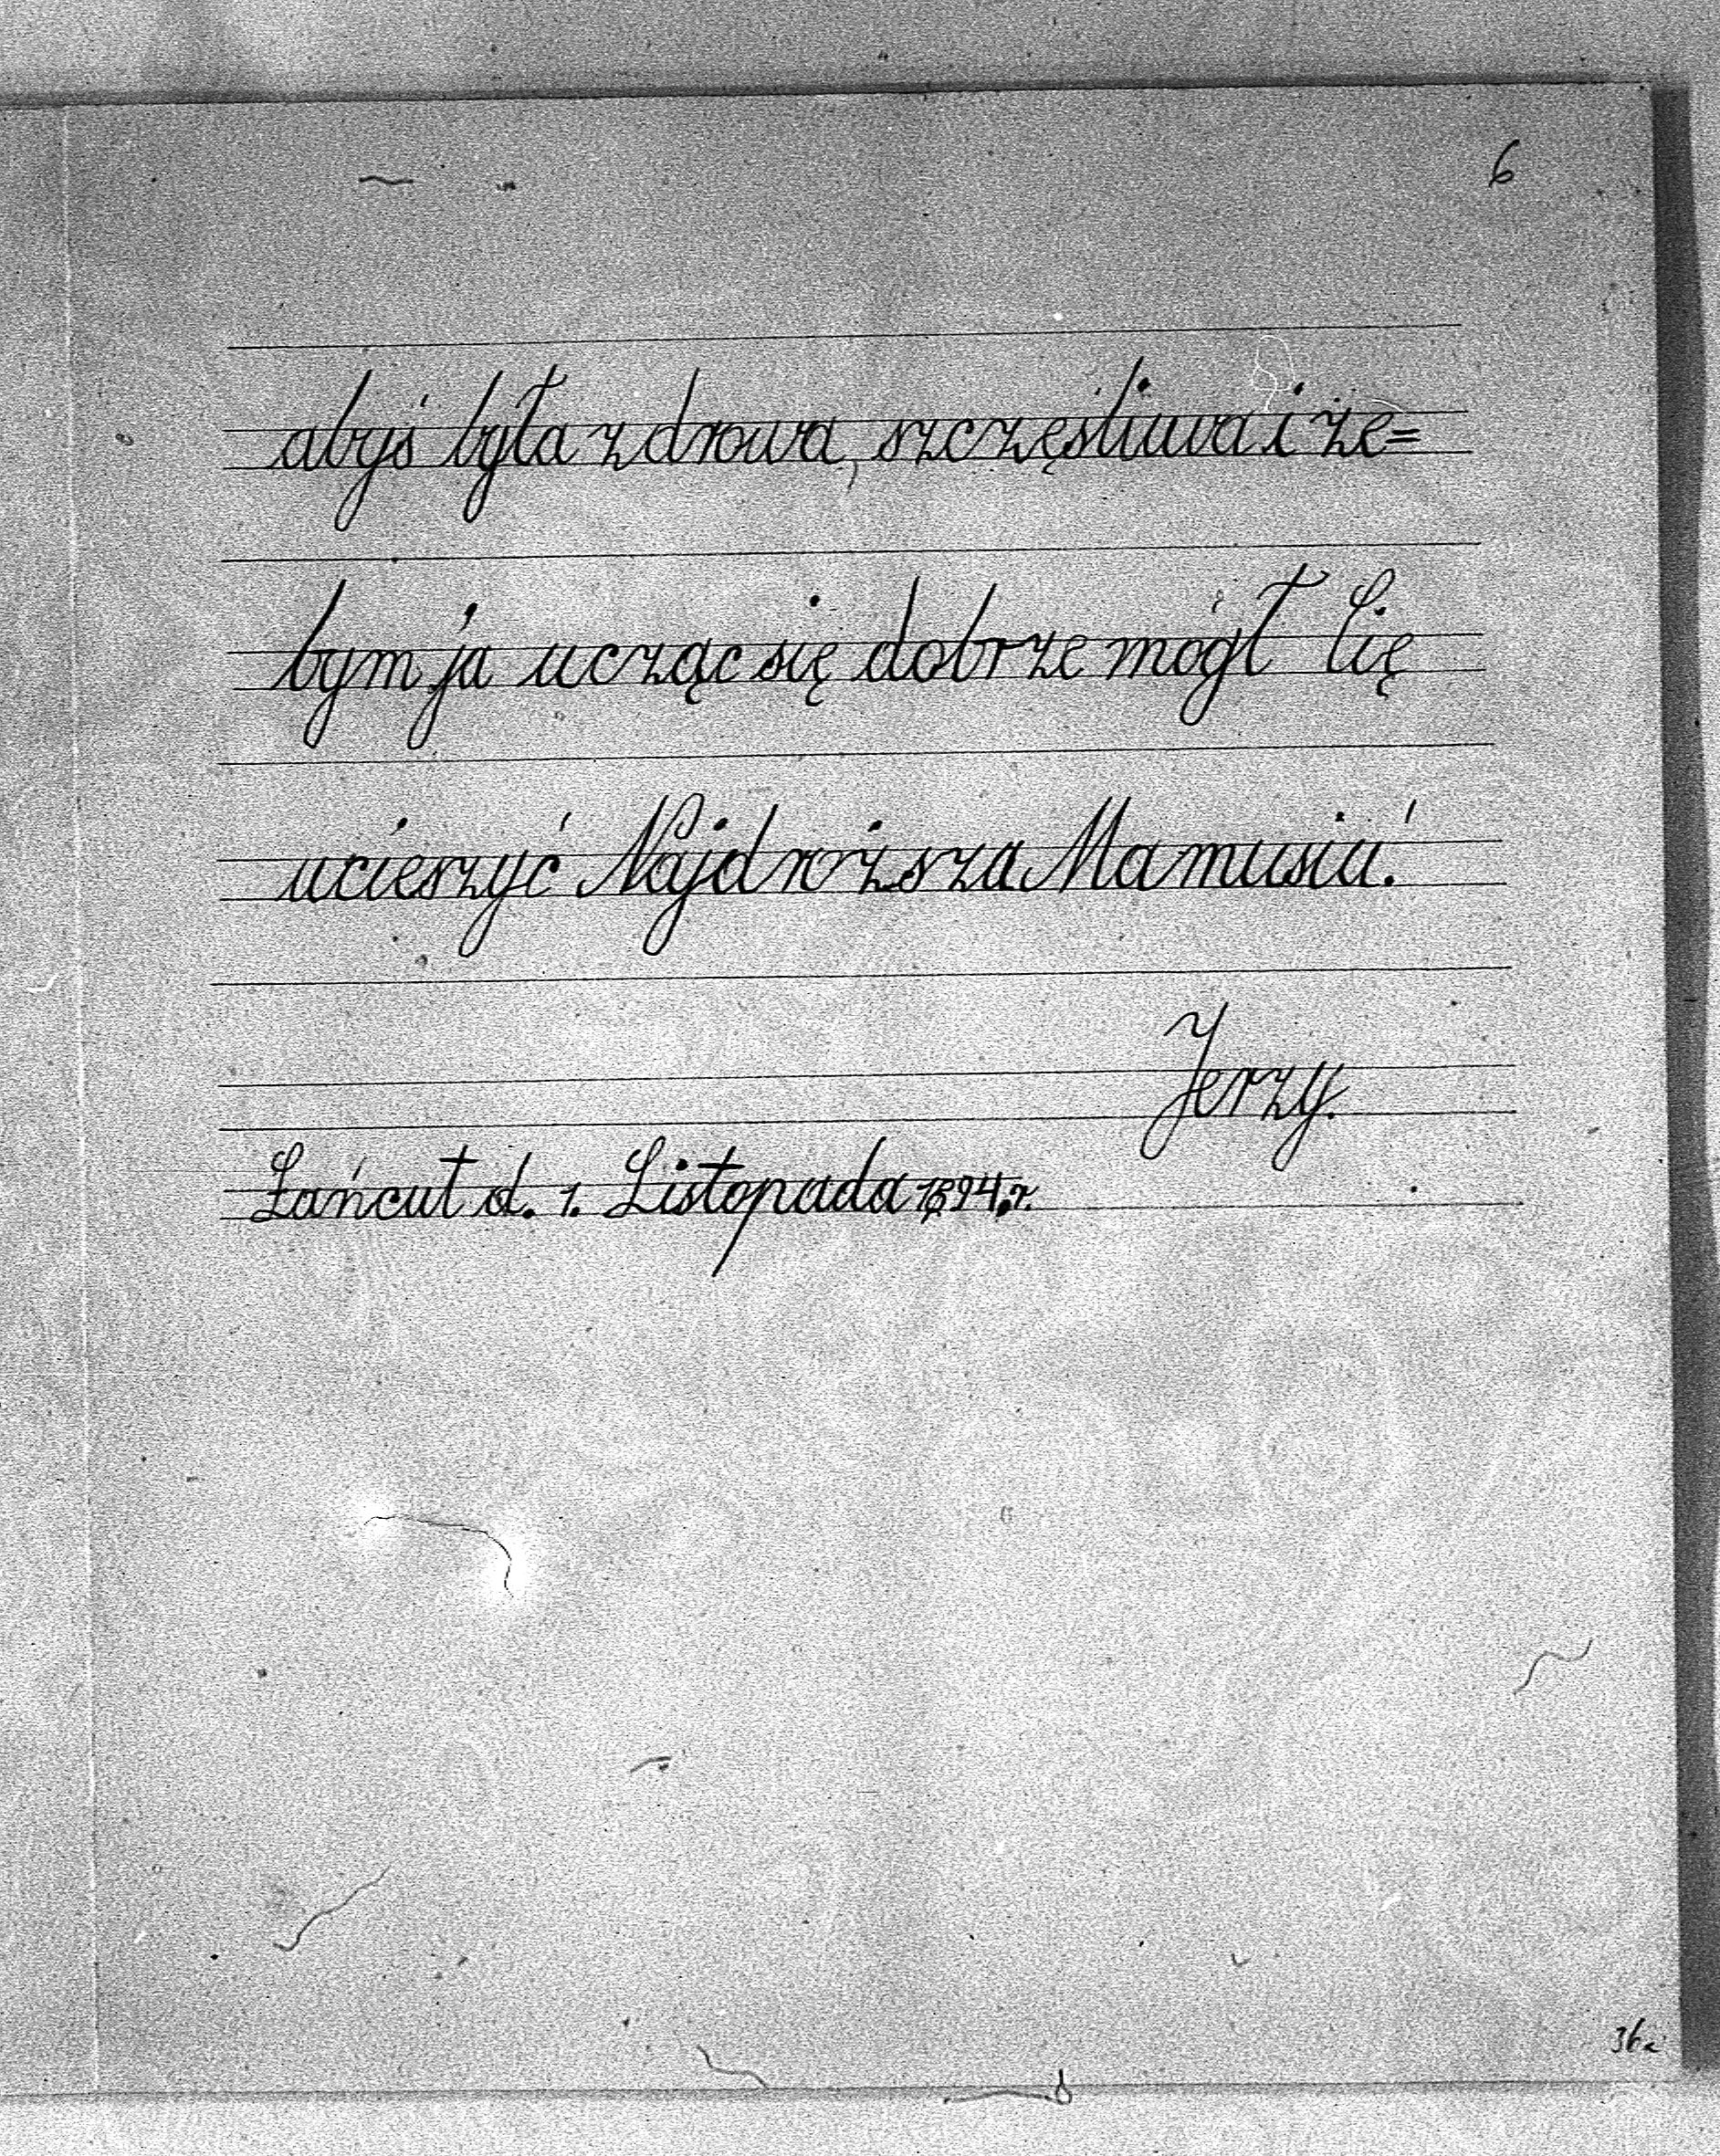 6
abyś była zdrowa, szczęśliwa i że=
bym ja ucząc się dobrze mógł Cię
ucieszyć Najdroższa Mamusiu!
Jerzy.
Łańcut d. 1. Listopada 1894. r.